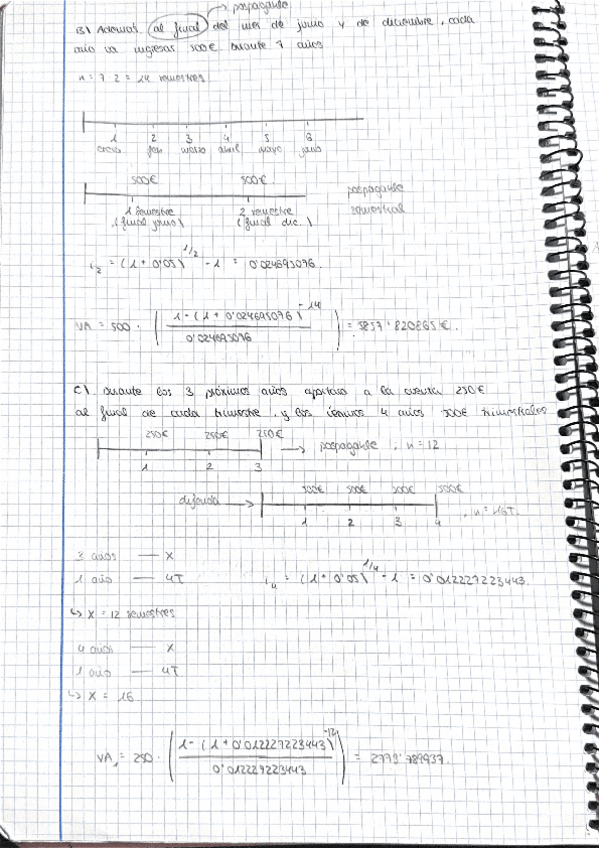 pospagable
B) Además, al final del mes de junio y de diciembre, cada
año va ingresar 500€ durante 7 años
n = 7 · 2 = 14 semestres
1 2 3 4 5 6
enero feb marzo abril mayo junio
500€ 500€
1 semestre 2 semestre pospagable
(final junio) (final dic.) semestral
i₂ = (1 + 0'05)^1/2 - 1 = 0'024695076.
VA = 500 · (1 - (1 + 0'024695076)^-14 / 0'024695076) = 5857'820865 €.
C) Durante los 3 próximos años aportará a la cuenta 250€
al final de cada trimestre, y los 4 años 300€ trimestrales
250€ 250€ 250€ → pospagable, n = 12
1 2 3
300€ 300€ 300€ 300€
diferida → , n = 16T.
1 2 3 4
3 años — X
1 año — 4T i₄ = (1 + 0'05)^1/4 - 1 = 0'012227223443.
↳ X = 12 semestres
4 años — X
1 año — 4T
↳ X = 16
VA₁ = 250 · (1 - (1 + 0'012227223443)^-12 / 0'012227223443) = 2775'789937.